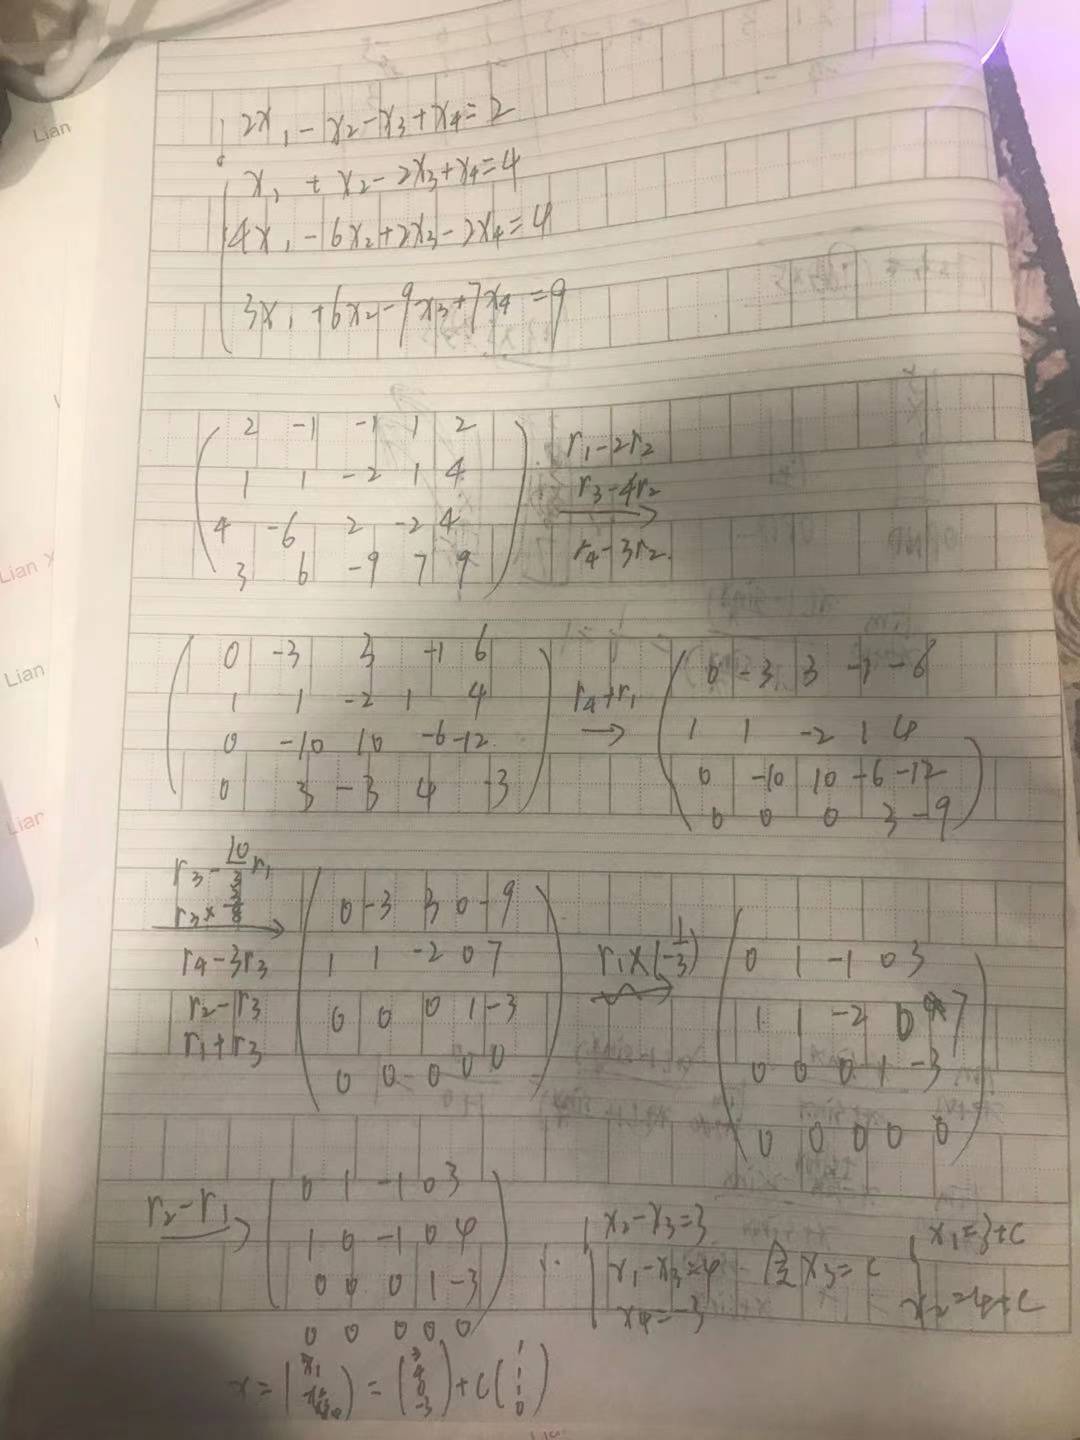 Lian
2x₁ - x₂ - x₃ + x₄ = 2
x₁ + x₂ - 2x₃ + x₄ = 4
4x₁ - 6x₂ + 2x₃ - 2x₄ = 4
3x₁ + 6x₂ - 9x₃ + 7x₄ = 9
2 -1 -1 1 2
1 1 -2 1 4
4 -6 2 -2 4
3 6 -9 7 9
r₁-2r₂
r₃-4r₂
→
r₄-3r₂
0 -3 3 -1 6
1 1 -2 1 4
0 -10 10 -6 -12
0 3 -3 4 -3
r₄+r₁
→
0 -3 3 -1 -6
1 1 -2 1 4
0 -10 10 -6 -12
0 0 0 3 -9
Lian X
Lian
Lian
r₃ - 10/3 r₁
r₃ ×
→
r₄-3r₃
r₂-r₃
r₁+r₃
0 -3 3 0 -9
1 1 -2 0 7
0 0 0 1 -3
0 0 0 0 0
r₁×(-1/3)
→
0 1 -1 0 3
1 1 -2 0 7
0 0 0 1 -3
0 0 0 0 0
r₂-r₁
→
0 1 -1 0 3
1 0 -1 0 4
0 0 0 1 -3
0 0 0 0 0
∴
x₂-x₃=3
x₁-x₃=4
x₄=-3
令x₃=c
x₁=3+c
x₂=4+c
x = = +c
1
1
1
0